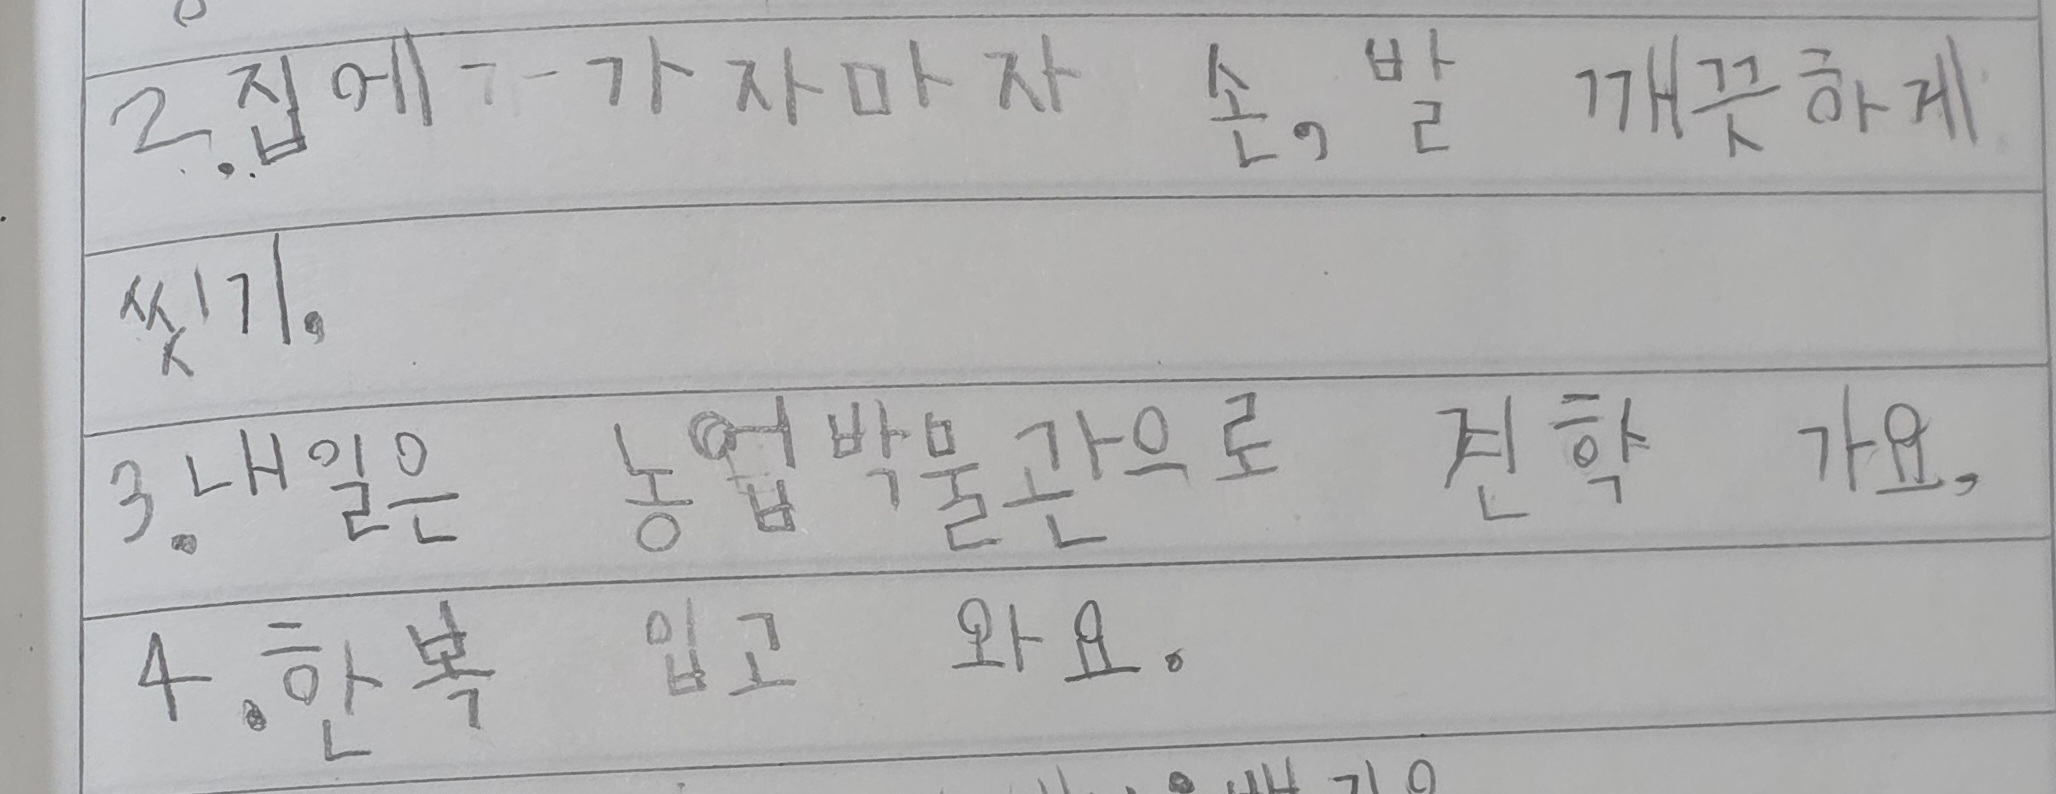 2.집에 가자마자 손, 발 깨끗하게
씻기.
3.내일은 농업박물관으로 견학 가요.
4.한복 입고 와요.